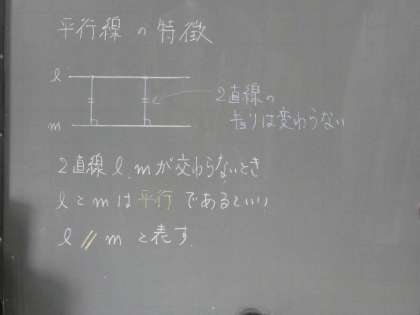 平行線の特徴
l
m
2直線の
きょりは変わらない
2直線l,mが交わらないとき
lとmは平行であるといい
l // m と表す。